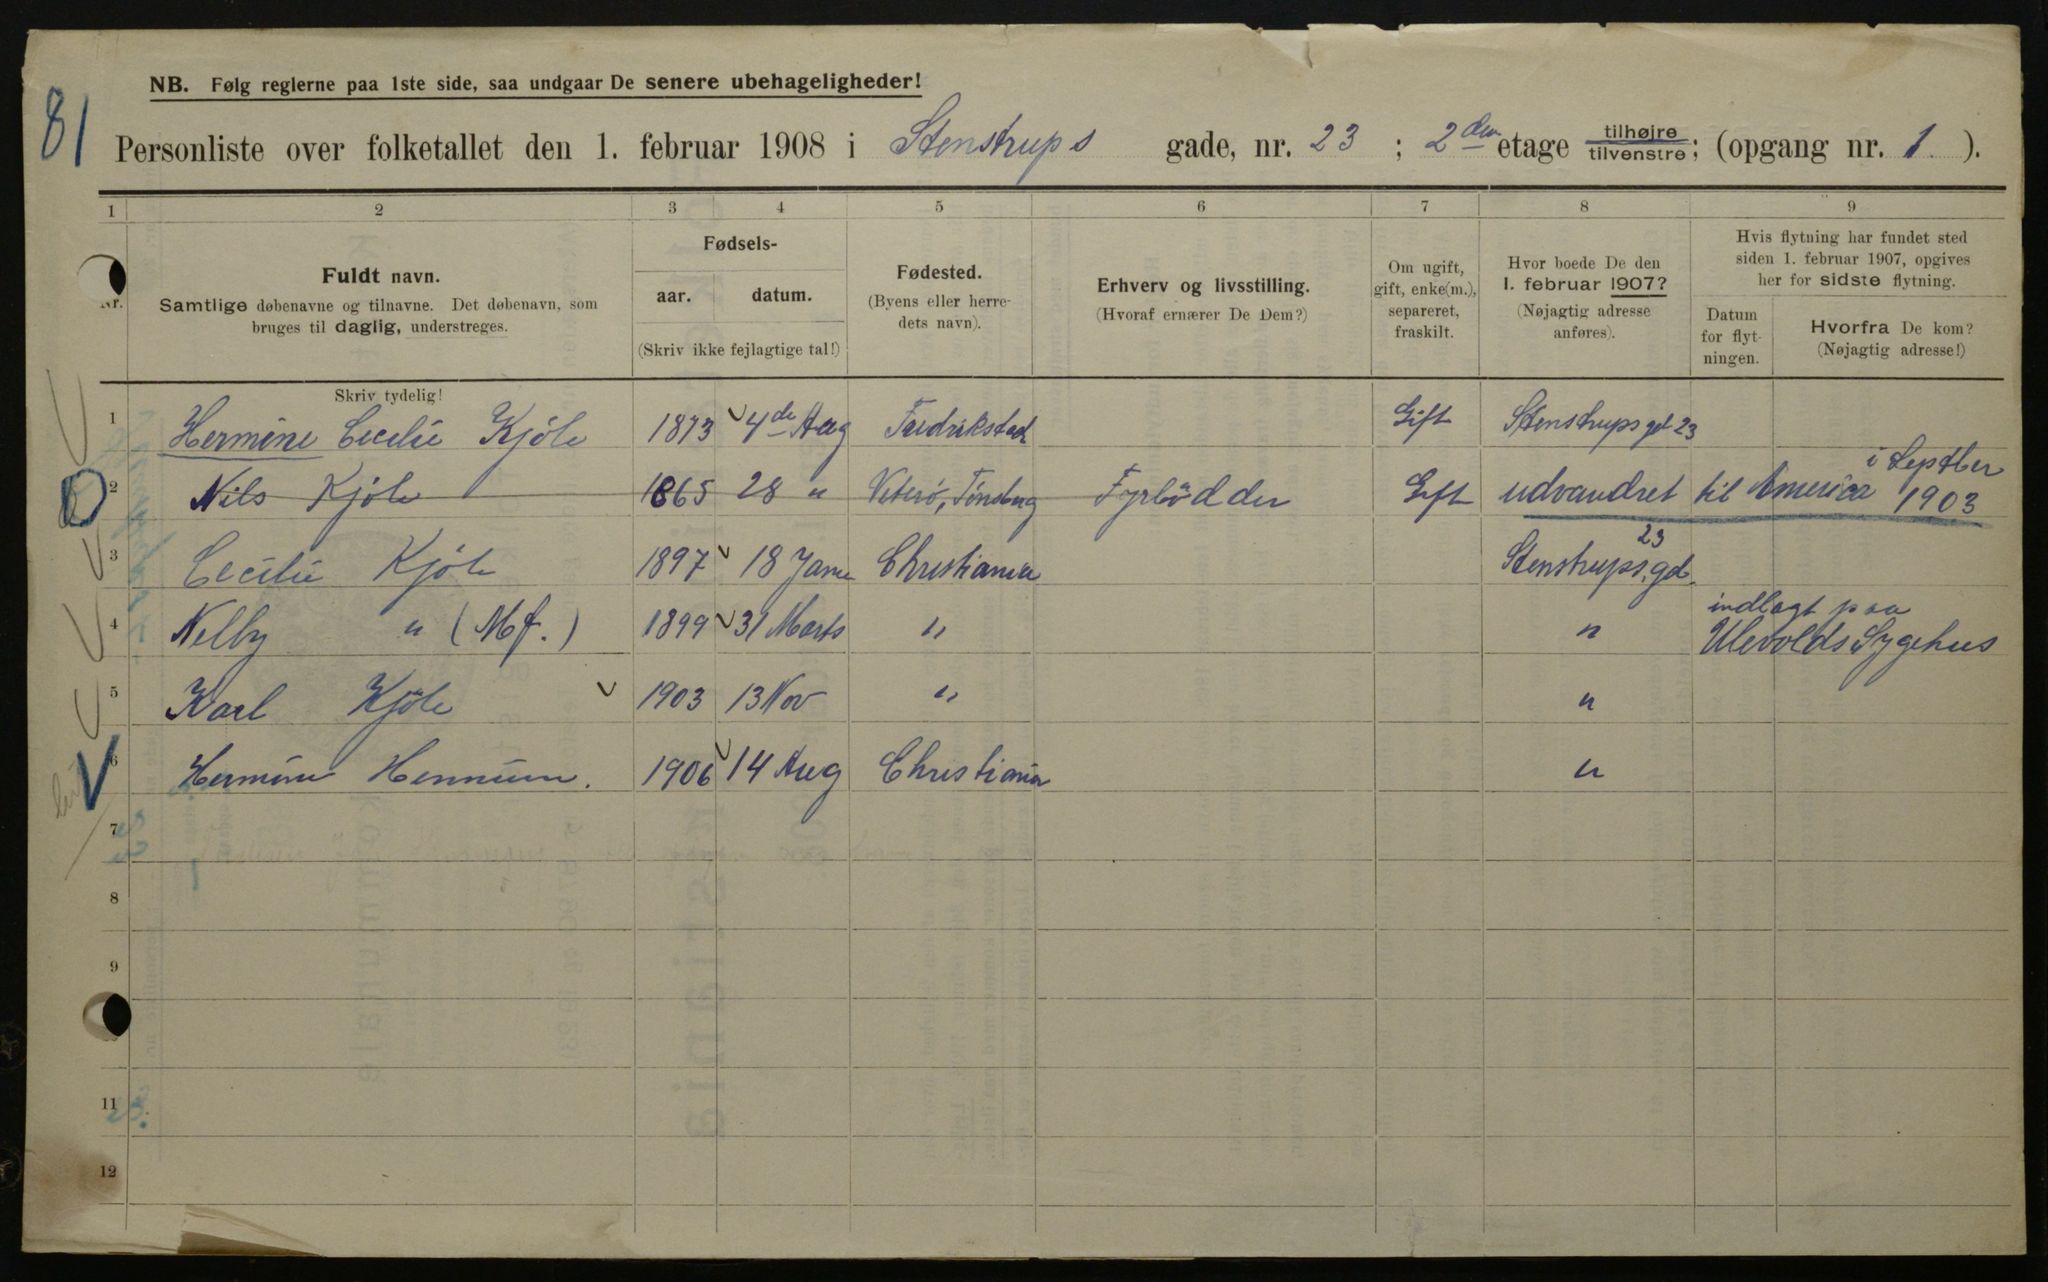 81
NB. Følg reglerne paa 1ste side, saa undgaar De senere ubehageligheder!
Personliste over folketallet den 1. februar 1908 i Stenstrups gade, nr. 23 ; 2den etage tilhøjre tilvenstre; (opgang nr. 1 ).
1 2 3 4 5 6 7 8 9
Nr.
Fuldt navn.
Samtlige døbenavne og tilnavne. Det døbenavn, som
bruges til daglig, understreges.
Skriv tydelig!
Fødsels-
aar. datum.
(Skriv ikke fejlagtige tal!)
Fødested.
(Byens eller herre-
dets navn).
Erhverv og livsstilling.
(Hvoraf ernærer De Dem?)
Om ugift,
gift, enke(m.),
separeret,
fraskilt.
Hvor boede De den
1. februar 1907?
(Nøjagtig adresse
anføres).
Hvis flytning har fundet sted
siden 1. februar 1907, opgives
her for sidste flytning.
Datum
for flyt-
ningen.
Hvorfra De kom?
(Nøjagtig adresse!)
1 Hermine Cecilie Kjöle 1873 4de Aug Fredrikstad Gift Stenstrupsgd 23
2 Nils Kjöle 1865 28 " Veterö, Tönsberg Fyrbödder Gift udvandret til America i Septber 1903
3 Cecilie Kjöle 1897 18 Janu Christiania Stenstrups.gd. 23
4 Nelly " (Mf.) 1899 31 Marts " " indlagt paa
Ulevolds Sygehus
5 Karl Kjöle 1903 13 Nov " "
6 Hermine Hennum. 1906 14 Aug Christiania "
7
8
9
11
12